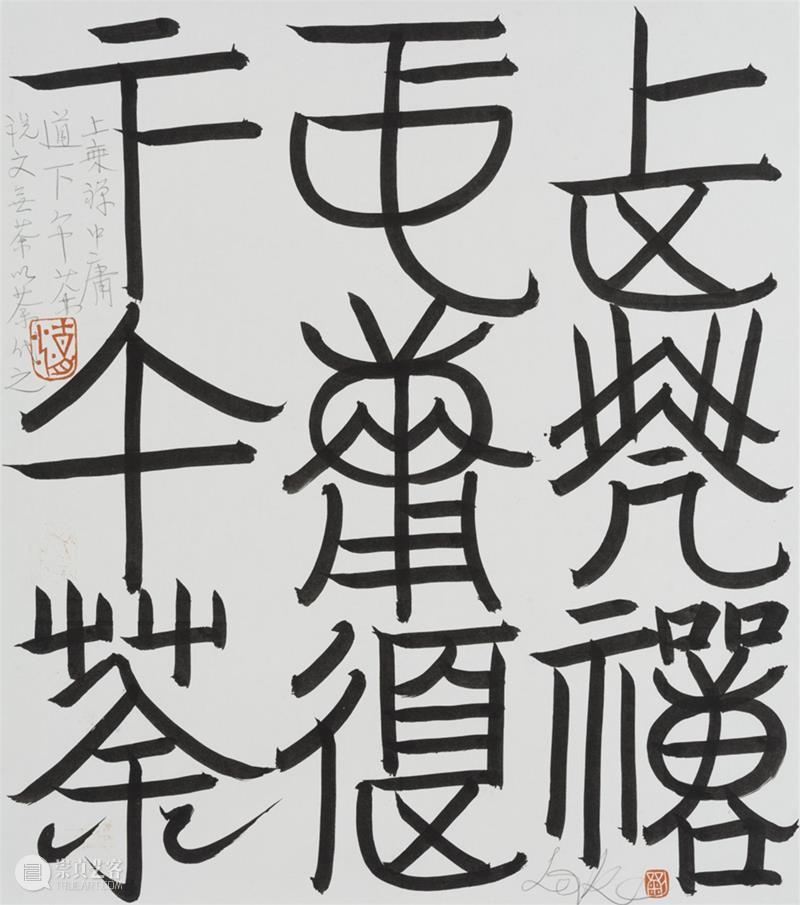 上乘禪
中庸道
下午荼
上乘禅中庸
道下午茶
说文无茶以荼代之
崇真艺客
TRUEART.COM